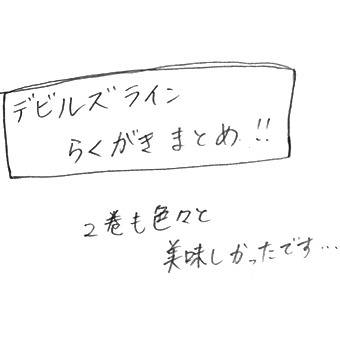 デビルズライン
らくがきまとめ!!
2巻も色々と
美味しかったです…